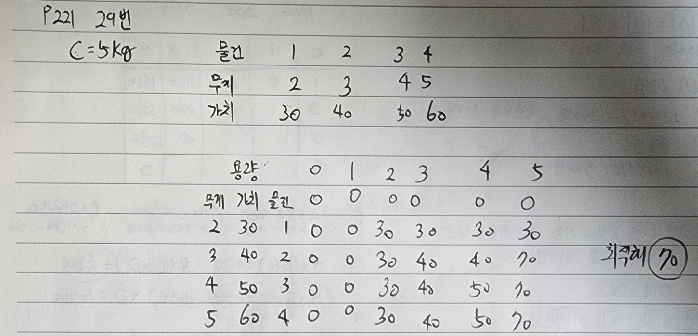 P221 29번
C=5kg
물건 1 2 3 4
무게 2 3 4 5
가치 30 40 50 60
용량 0 1 2 3 4 5
무게 가치 물건 0 0 0 0 0 0
2 30 1 0 0 30 30 30 30
3 40 2 0 0 30 40 40 70
4 50 3 0 0 30 40 50 70
5 60 4 0 0 30 40 50 70
최적해 70